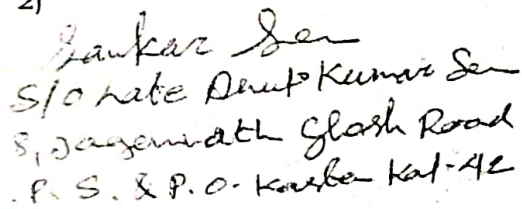 2)
Sankar Sen
S/o Late Anup Kumar Sen
8, Jagannath Ghosh Road
P. S. & P. O. Kasba Kol-42